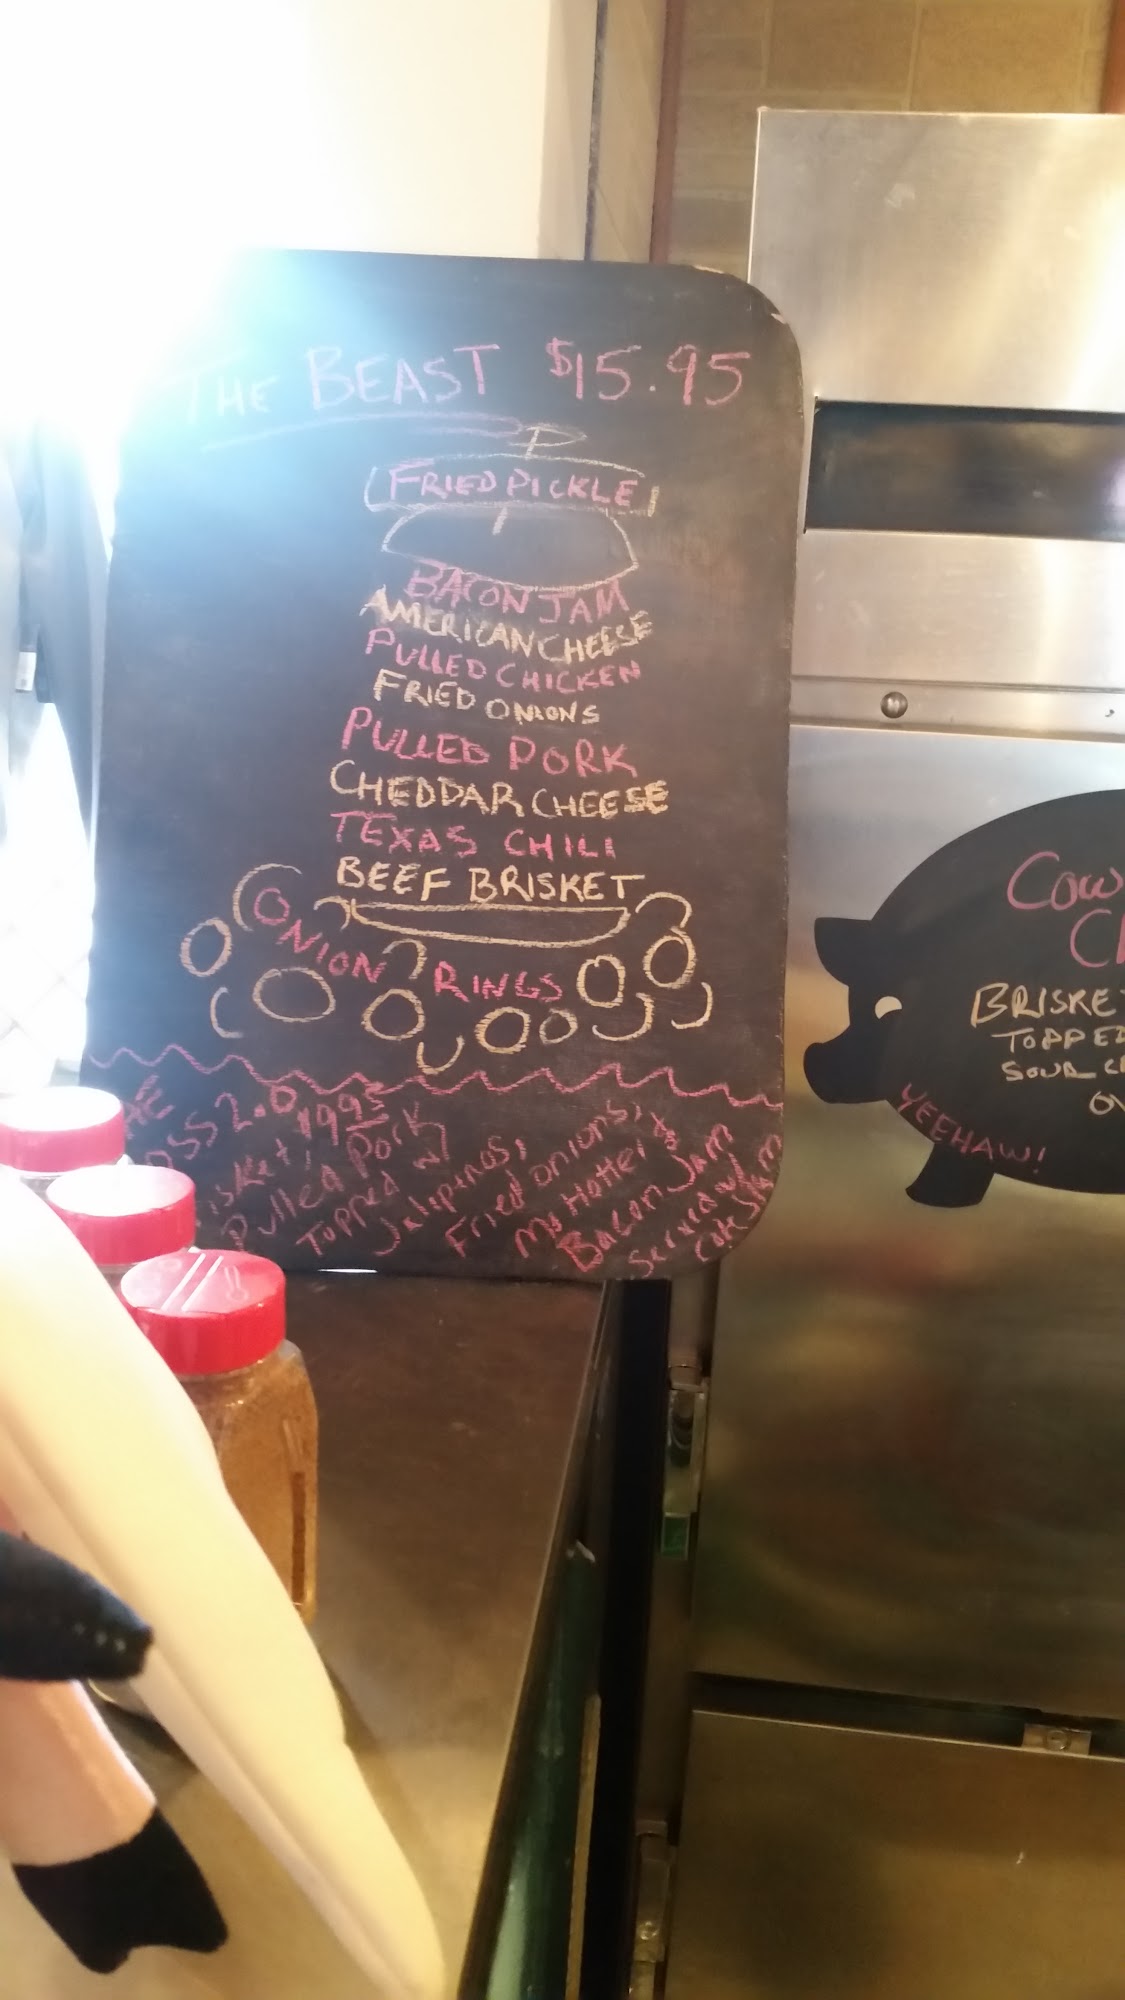 THE BEAST $15.95
FRIED PICKLE
BACON JAM
AMERICAN CHEESE
PULLED CHICKEN
FRIED ONIONS
PULLED PORK
CHEDDAR CHEESE
TEXAS CHILI
BEEF BRISKET
ONION RINGS
2.0 1995
Pulled Pork
Topped w/
Fried onions,
Bacon Jam
served w/
BRISKE
TOPPED
SOUR
YEEHAW!